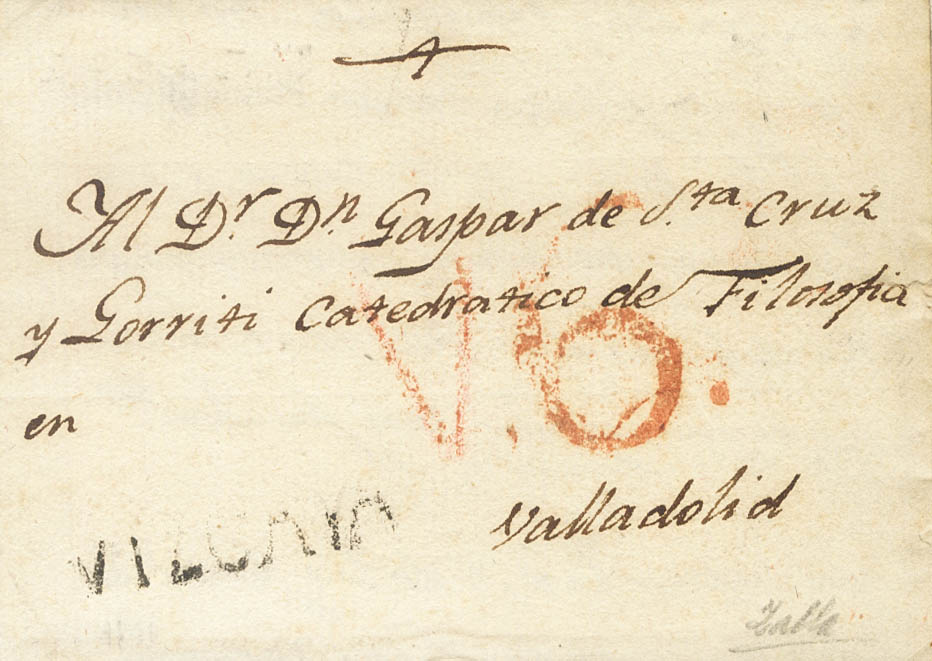 A
Al Dr. Dn Gaspar de S.ta Cruz
y Gorriti Catedratico de Filosofia
en
V.6.
Valladolid
VIZCAYA
Zalla